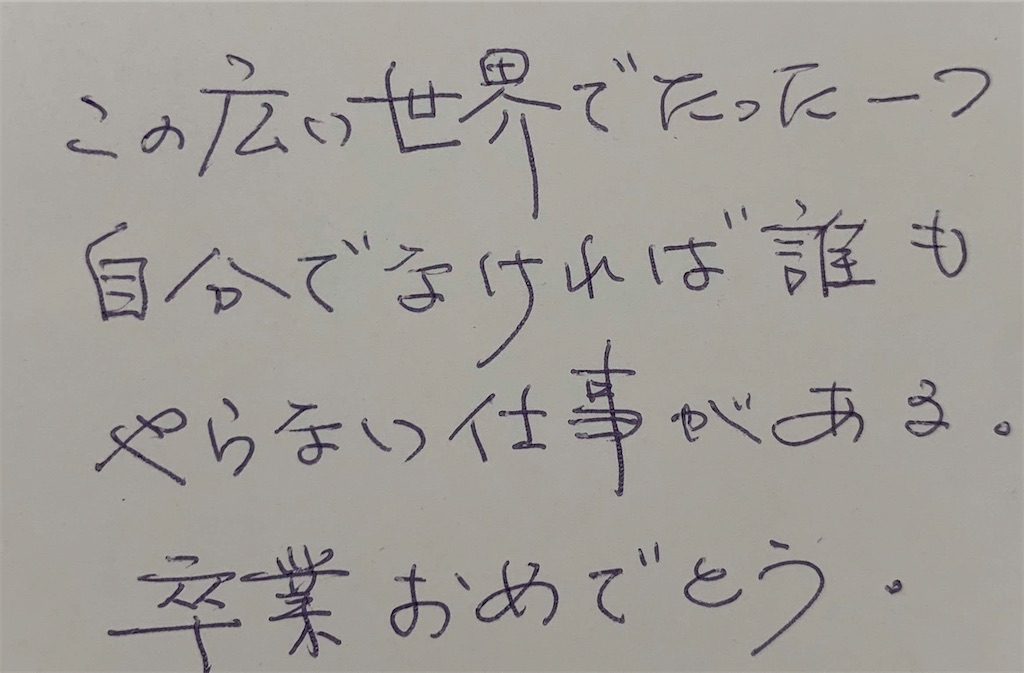 この広い世界でたった一つ
自分でなければ誰も
やらない仕事がある。
卒業おめでとう.